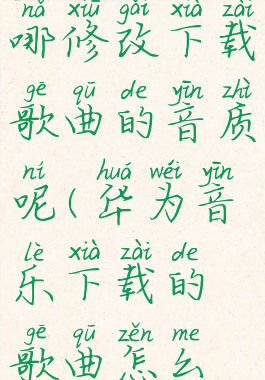 nǎ xiū gǎi xià zǎi
哪修改下载
gē qū de yīn zhì
歌曲的音质
ní huá wéi yīn
呢(华为音
lè xià zǎi de
乐下载的
gē qū zěn me
歌曲怎么